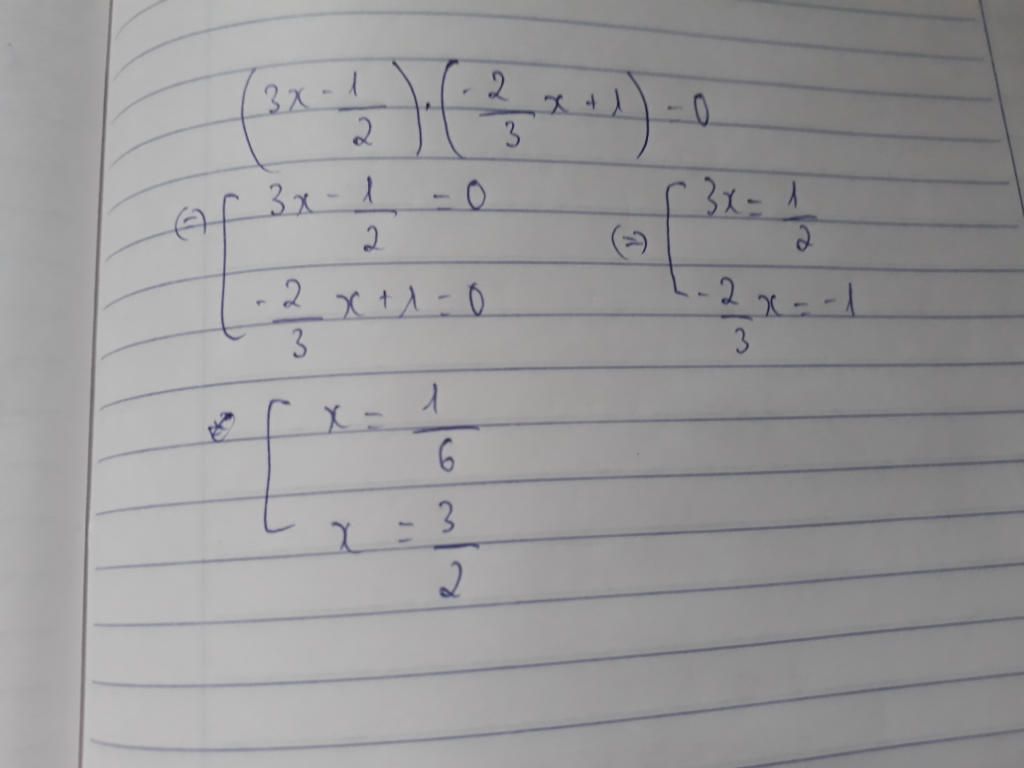 (3x - 1/2) . (-2/3 x + 1) = 0
(=) [ 3x - 1/2 = 0 (=) [ 3x = 1/2
-2/3 x + 1 = 0 -2/3 x = -1
[ x = 1/6
x = 3/2